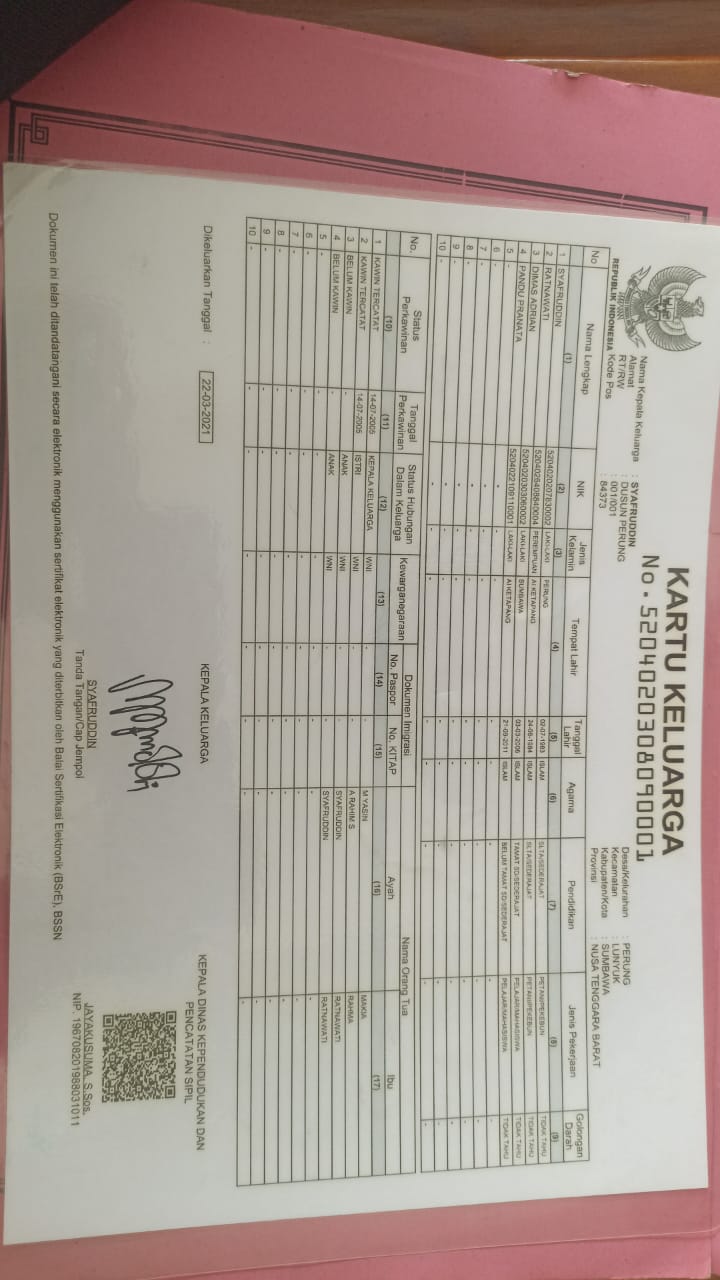 KARTU KELUARGA
No. 5204020308090001
REPUBLIK INDONESIA
Nama Kepala Keluarga : SYAFRUDDIN
Alamat : DUSUN PERUNG
RT/RW : 001/001
Kode Pos : 84373
Desa/Kelurahan : PERUNG
Kecamatan : LUNYUK
Kabupaten/Kota : SUMBAWA
Provinsi : NUSA TENGGARA BARAT
No Nama Lengkap NIK Jenis Kelamin Tempat Lahir Tanggal Lahir Agama Pendidikan Jenis Pekerjaan Golongan Darah
(1) (2) (3) (4) (5) (6) (7) (8) (9)
1 SYAFRUDDIN 5204020207830002 LAKI-LAKI PERUNG 02-07-1983 ISLAM SLTA/SEDERAJAT PETANI/PEKEBUN TIDAK TAHU
2 RATNAWATI 5204026408840004 PEREMPUAN AI KETAPANG 24-08-1984 ISLAM SLTA/SEDERAJAT PETANI/PEKEBUN TIDAK TAHU
3 DIMAS ADRIAN 5204020303060002 LAKI-LAKI SUMBAWA 03-03-2006 ISLAM TAMAT SD/SEDERAJAT PELAJAR/MAHASISWA TIDAK TAHU
4 PANDU PRANATA 5204022109110001 LAKI-LAKI AI KETAPANG 21-09-2011 ISLAM BELUM TAMAT SD/SEDERAJAT PELAJAR/MAHASISWA TIDAK TAHU
5 - - - - - - - - -
6 - - - - - - - - -
7 - - - - - - - - -
8 - - - - - - - - -
9 - - - - - - - - -
10 - - - - - - - - -
No. Status Perkawinan Tanggal Perkawinan Status Hubungan Dalam Keluarga Kewarganegaraan Dokumen Imigrasi Nama Orang Tua
No. Paspor No. KITAP Ayah Ibu
(10) (11) (12) (13) (14) (15) (16) (17)
1 KAWIN TERCATAT 14-07-2005 KEPALA KELUARGA WNI - - M YASIN MAKIA
2 KAWIN TERCATAT 14-07-2005 ISTRI WNI - - A RAHIM S RAHMA
3 BELUM KAWIN - ANAK WNI - - SYAFRUDDIN RATNAWATI
4 BELUM KAWIN - ANAK WNI - - SYAFRUDDIN RATNAWATI
5 - - - - - - - -
6 - - - - - - - -
7 - - - - - - - -
8 - - - - - - - -
9 - - - - - - - -
10 - - - - - - - -
Dikeluarkan Tanggal : 22-03-2021
KEPALA KELUARGA
SYAFRUDDIN
Tanda Tangan/Cap Jempol
KEPALA DINAS KEPENDUDUKAN DAN
PENCATATAN SIPIL
JAYAKUSUMA, S.Sos.
NIP. 196708201988031011
Dokumen ini telah ditandatangani secara elektronik menggunakan sertifikat elektronik yang diterbitkan oleh Balai Sertifikasi Elektronik (BSrE), BSSN